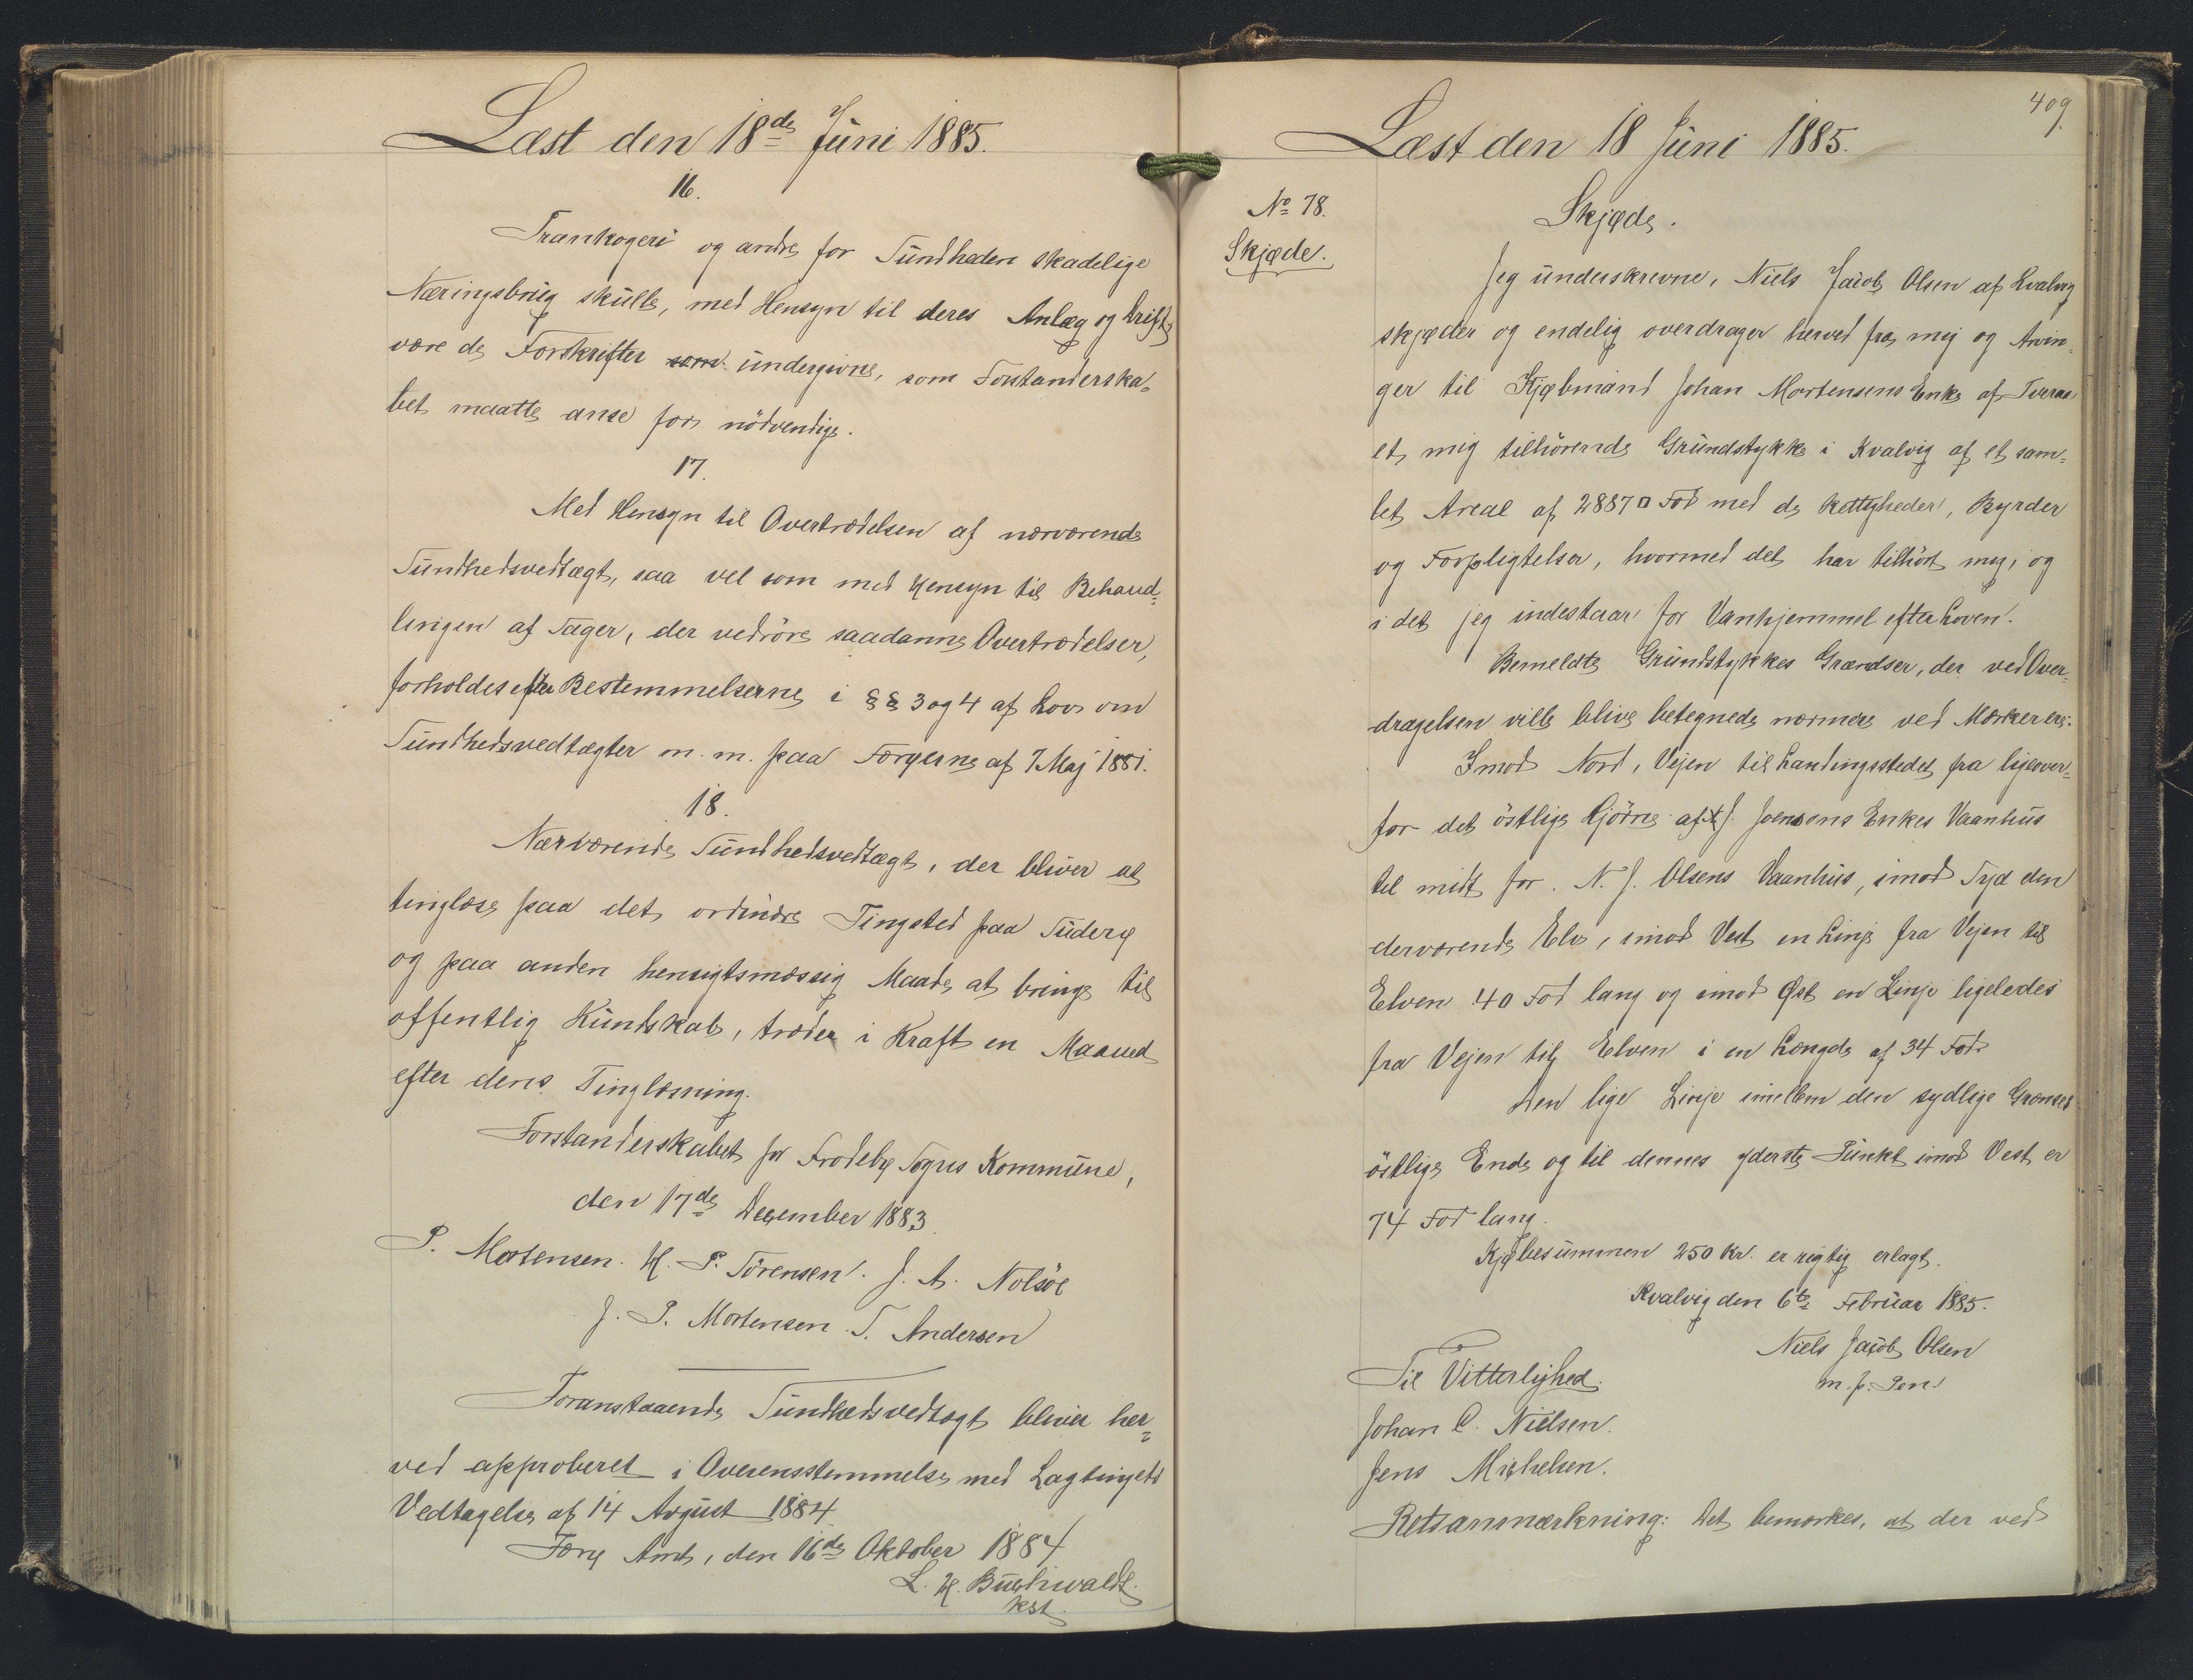 Læst den 18de Juni 1885.
16.
Trankogeri og andre for Sundheden skadelige
Næringsbrug skulle, med Hensyn til deres Anlæg og Drift,
være de Forskrifter som undergivne, som Forstanderska-
bet maatte anse for nödvendige.
17.
Med Hensyn til Overtrædelsen af nærværende
Sundhedsvedtægt, saa vel som med Hensyn til Behand-
lingen af Sager, der vedröre saadanne Overtrædelser,
forholdes efter Bestemmelserne i §§ 3 og 4 af Lov om
Sundhedsvedtægter m. m. paa Færøerne af 7 Maj 1881.
18.
Nærværende Sundhedsvedtægt, der bliver at
tinglæse paa det ordinære Tingsted paa Suderø
og paa anden hensigtsmæssig Maade at bringe til
offentlig Kundskab, træder i Kraft en Maaned
efter dens Tinglæsning.
Forstanderskabet for Frodebø Sogns Kommune,
den 17de December 1883
P. Mortensen. H. P. Sörensen. J. A. Nolsöe
J. P. Mortensen T. Andersen
Foranstaaende Sundhedsvedtægt bliver her-
ved approberet i Overensstemmelse med Lagtingets
Vedtagelse af 14 August 1884
Færø Amt, den 16de Oktober 1884
L. H. Buchwaldt.
kst.
409.
Læst den 18 Juni 1885.
No 78.
Skjøde.
Skjøde.
Jeg underskrevne, Niels Jacob Olsen af Kvalvig
skjøder og endelig overdrager herved fra mig og Arvin-
ger til Kjøbmand Johan Mortensens Enke af
et mig tilhörende Grundstykke i Kvalvig af et sam-
let Areal af 2887 □ Fod med de Rettigheder, Byrder
og Forpligtelser, hvormed det har tilhört mig, og
i det jeg indestaar for Vanhjemmel efter Loven.
Bemeldte Grundstykkes Grændser, der ved Over-
dragelsen ville blive betegnede nærmere ved Mærker ere:
Imod Nord, Vejen til Landingsstedet fra ligeover-
for det östlige Hjörne af J. Joensens Enkes Vaanhus
til midt for N. J. Olsens Vaanhus, imod Syd den
derværende Elv, imod Vest en Linje fra Vejen til
Elven 40 Fod lang og imod Øst en Linje ligeledes
fra Vejen til Elven i en Længde af 34 Fod.
Den lige Linje imellem den sydlige Grænses
östlige Ende og til dennes yderste Punkt imod Vest er
74 Fod lang.
Kjøbesummen 250 Kr. er rigtig erlagt.
Kvalvig den 6te Februar 1885.
Niels Jacob Olsen
m. f. Pen.
Til Vitterlighed.
Johan C. Nielsen.
Jens Michelsen.
Retsanmærkning: Det bemærkes, at der ved